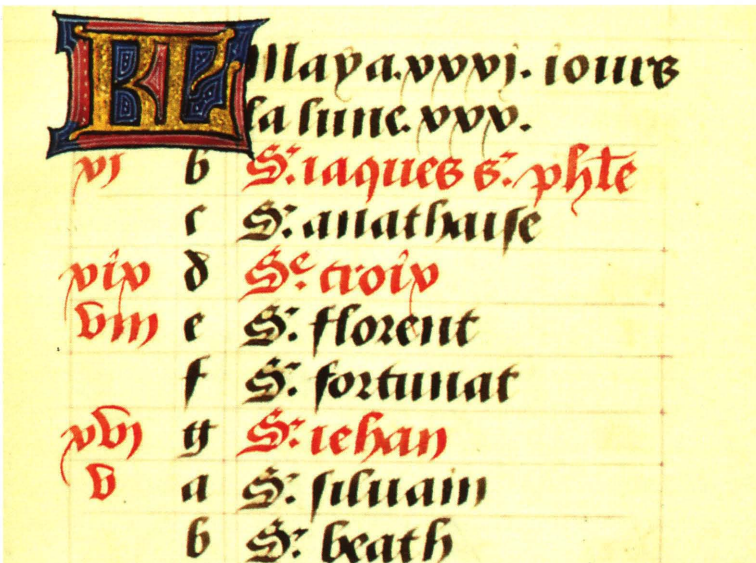 KL May a .xxxi. iours
la lune .xxx.
xi b S. iaques s. phłe
c S. anathaise
xix d Se croix
viii e S. florent
f S. fortunat
xvi g S. iehan
v a S. siluain
b S. beath